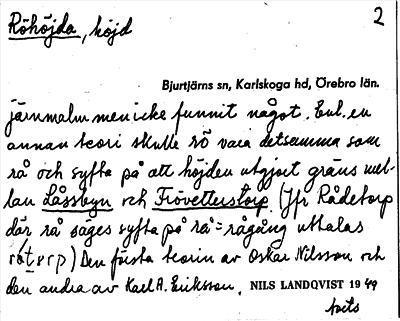 Röhöjda, höjd 2
Bjurtjärns sn, Karlskoga hd, Örebro län.
järnmalm men icke funnit något. Enl. en
annan teori skulle rö vara detsamma som
rå och syfta på att höjden utgjort gräns mel-
lan Låssbyn och Frövettestorp (Jfr Rådetorp
där rå säges syfta på rå = rågång uttalas
Den första teorin av Oskar Nilsson och
den andra av Karl A. Eriksson. NILS LANDQVIST 1949
forts